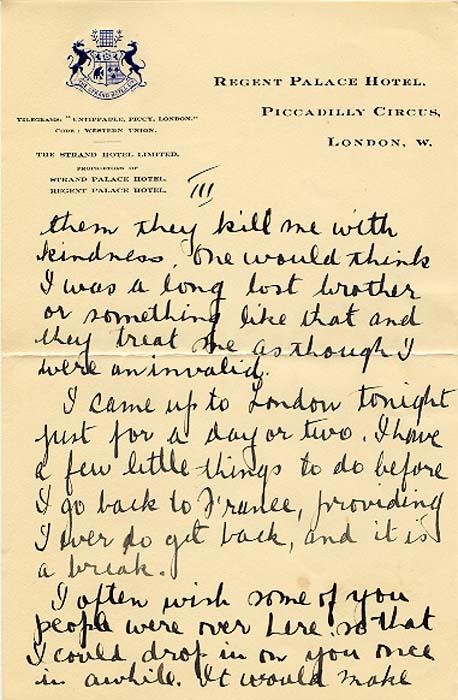 REGENT PALACE HOTEL.
PICCADILLY CIRCUS,
LONDON, W.
TELEGRAMS: "UNTIPPABLE, PICCY, LONDON."
CODE: WESTERN UNION.
THE STRAND HOTEL LIMITED.
PROPRIETORS OF
STRAND PALACE HOTEL.
REGENT PALACE HOTEL.
III
them they kill me with
kindness. One would think
I was a long lost brother
or something like that and
they treat me as though I
were an invalid.
I came up to London tonight
just for a day or two. I have
a few little things to do before
I go back to France, providing
I ever do get back, and it is
a break.
I often wish some of you
people were over here so that
I could drop in on you once
in awhile. It would make